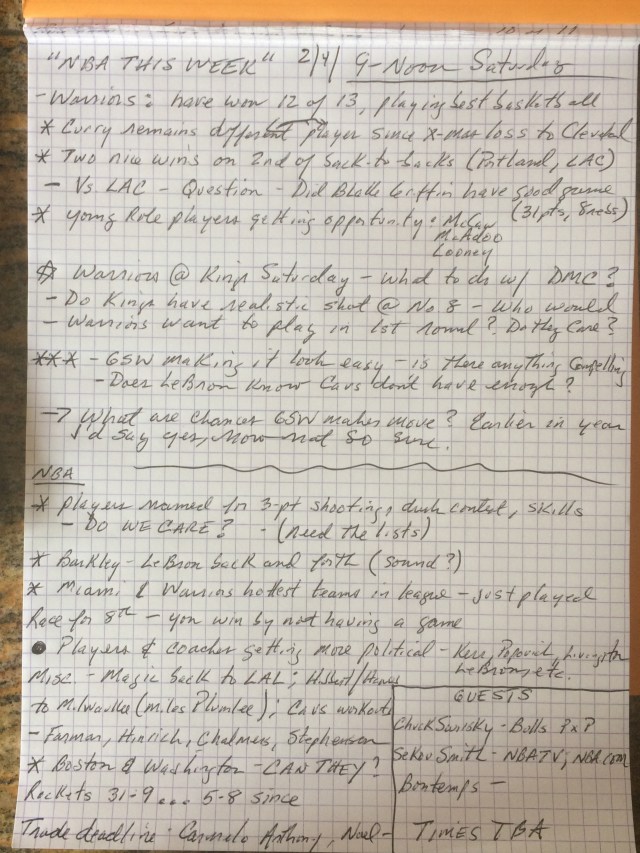 "NBA THIS WEEK" 2/4/ 9-Noon Saturday
- Warriors: have won 12 of 13, playing best basketball
* Curry remains different player since X-mas loss to Cleveland
* Two nice wins on 2nd of back-to-backs (Portland, LAC)
- Vs LAC - Question - Did Blake Griffin have good game
(31pts, 8rebs)
* young Role players getting opportunity: McCaw
McAdoo
Looney
* Warriors @ Kings Saturday - what to do w/ DMC?
- Do Kings have realistic shot @ No. 8 - Who would
- Warriors want to play in 1st round? Do they Care?
*** - GSW making it look easy - is there anything Compelling
- Does LeBron know Cavs don't have enough?
→ What are chances GSW makes move? Earlier in year
I'd say yes, Now not so sure.
NBA
* players named for 3-pt shooting, dunk contest, skills
- DO WE CARE? - (need the lists)
* Barkley - LeBron back and forth (sound?)
* Miami & Warriors hottest teams in league - just played
Race for 8th - you win by not having a game
● Players & coaches getting more political - Kerr, Popovich, Livingston
LeBron, etc.
Misc. - Magic back to LAL; Hibbert/Hawes
to Milwaukee (Miles Plumlee); Cavs workouts
- Farmar, Hinrich, Chalmers, Stephenson
* Boston & Washington - CAN THEY?
Rockets 31-9... 5-8 since
Trade deadline: Carmelo Anthony, Noel -
GUESTS
Chuck Swirsky - Bulls PxP
Sekou Smith - NBATV; NBA.com
Bontemps -
TIMES TBA